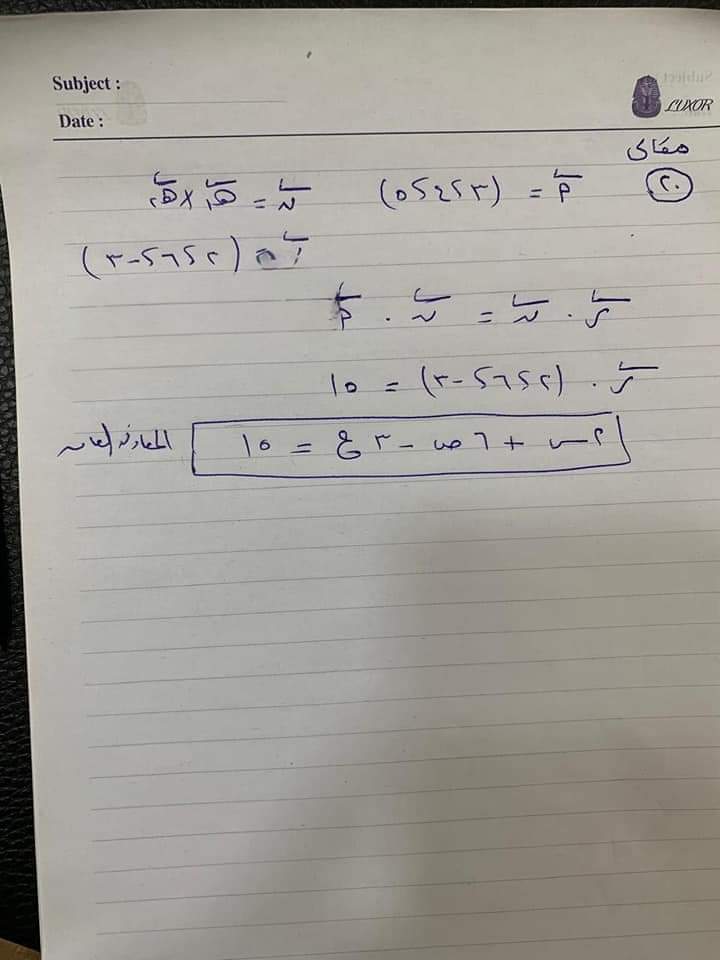 Subject :
Date :
LUXOR
مقالى
٢٠ أ = (٣ ، ٤ ، ٥) ن = هـ١ × هـ٢
ن = (٢ ، ٦ ، -٣)
ر . ن = ن . أ
ر . (٢ ، ٦ ، -٣) = ١٥
٢س + ٦ص - ٣ع = ١٥ المعادلة العامه